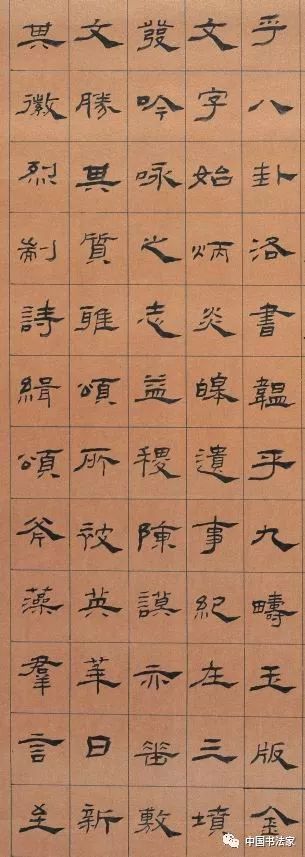 乎八卦洛書韞乎九疇玉版金
文字始炳炎皞遺事紀在三墳
發吟咏之志益稷陳謨亦垂敷
文勝其質雅頌所被英華日新
其徽烈制詩緝頌斧藻羣言至
中国书法家